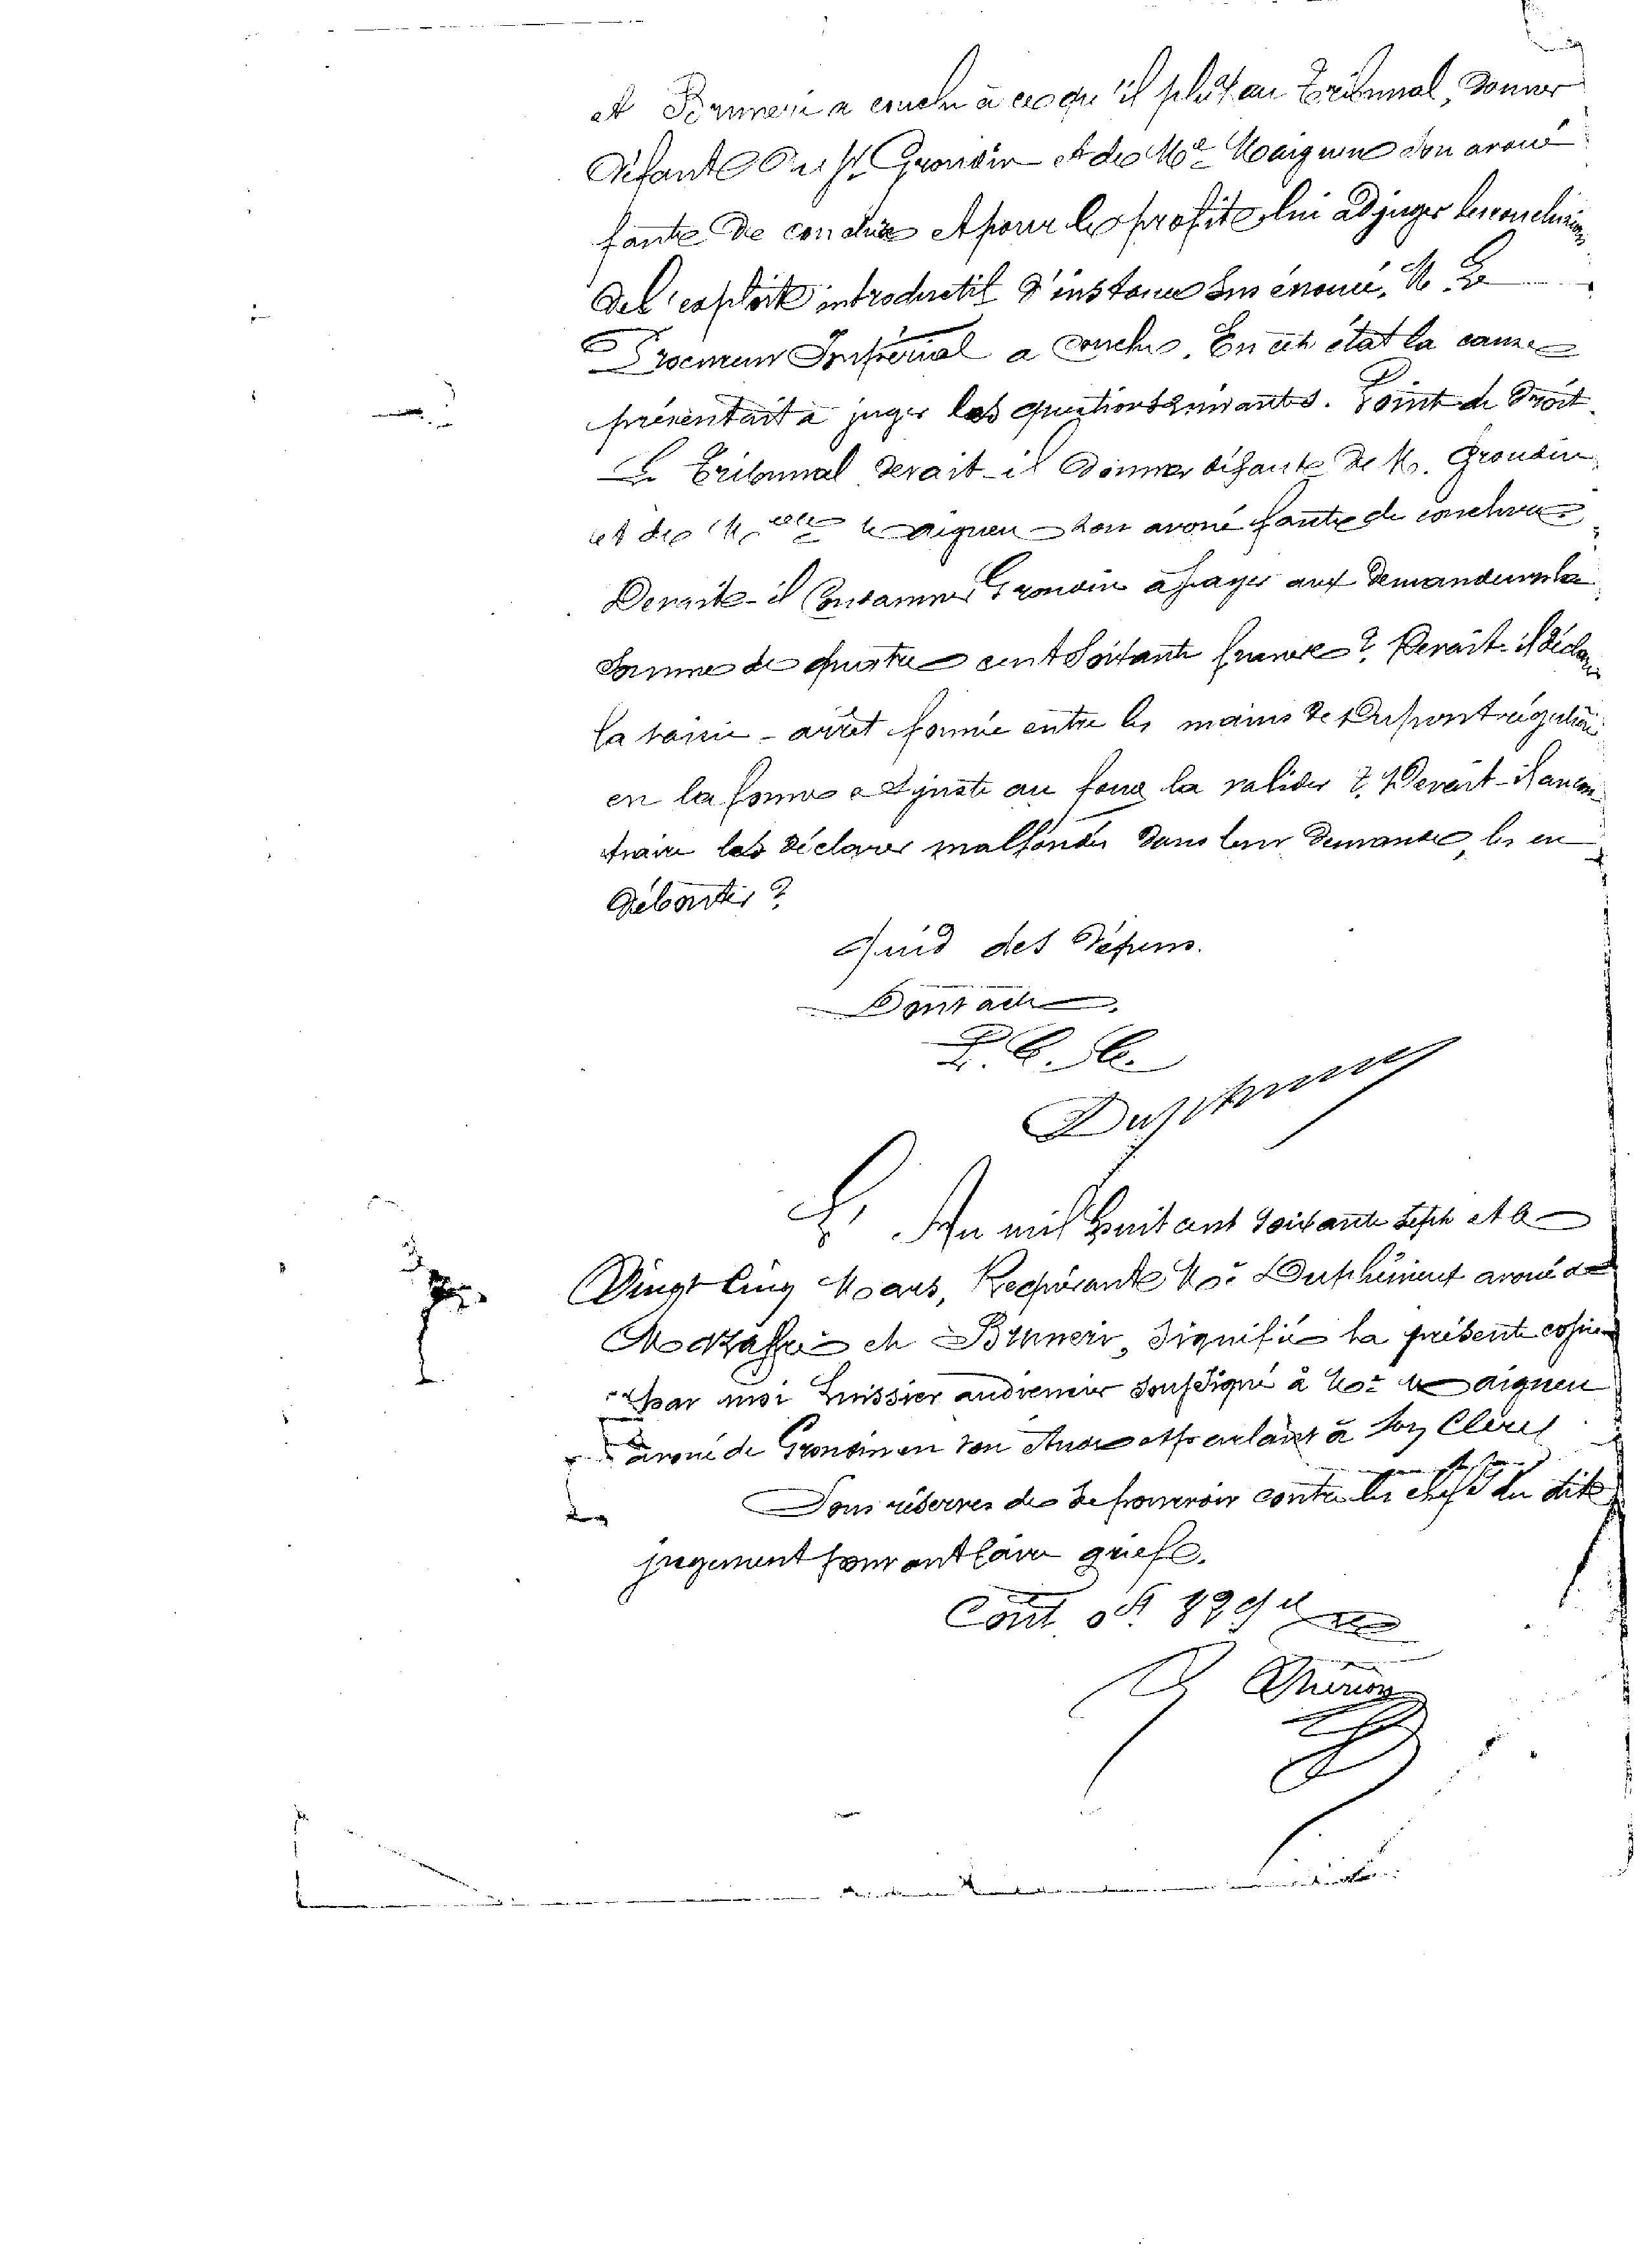 et Bruneri a conclu à ce qu'il plût au Tribunal, Donner
Défaut du Sr Grondin et de Me Maigneu son avoué
faute de conclure et pour le profit lui adjuger les conclusions
de l'exploit introductif d'instance sus énoncé. M. Le
Procureur Impérial a conclu. En cet état la cause
présentait à juger les questions suivantes. Point de Droit.
Le Tribunal devait-il donner défaut de M. Grondin
et de Me Maigneu son avoué faute de conclure
Devait-il Condamner Grondin à payer aux demandeurs la
somme de quatre cent soixante francs? Devait-il déclarer
la saisie-arrêt formée entre les mains de Dupont régulière
en la forme et juste au fond la valider? Devait-il au con
traire les déclarer mal fondés dans leur demande, les en
débouter?
Quid des dépens.
Dont acte.
P. C. Ce.
L'An mil huit cent soixante sept et le
Vingt Cinq Mars, Requérant Me avoué de
et Bruneri, signifié la présente copie
par moi huissier audiencier soussigné à Me Maigneu
avoué de Grondin en son étude et parlant à son Clerc
Sous réserves de se pourvoir contre les chefs du dit
jugement pouvant faire grief.
Cout